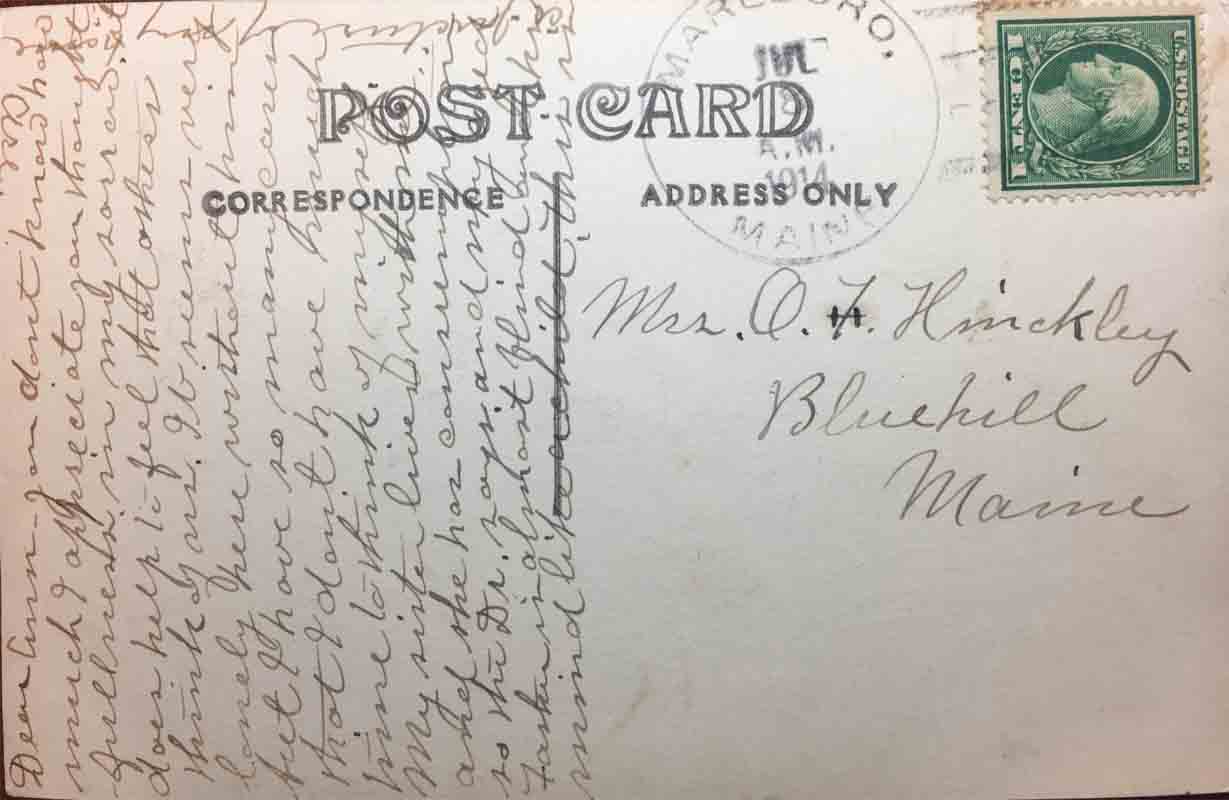 POST CARD
CORRESPONDENCE
ADDRESS ONLY
MARLBORO,
JUL
A.M.
1914
MAINE
U.S. POSTAGE
1 CENT 1
Mrs. O. Hinckley
Bluehill
Maine
Dear Ann - you dont know how
much I appreciate your thought
fullness in my sorrow. it
does help to feel that others
think of us. It seems very
lonely here without him
but I have so many cares
that I dont have much
time to think of myself.
My sister lives with me
and she has consumption
so the Dr. says and my
is almost blind and
mind like a child,